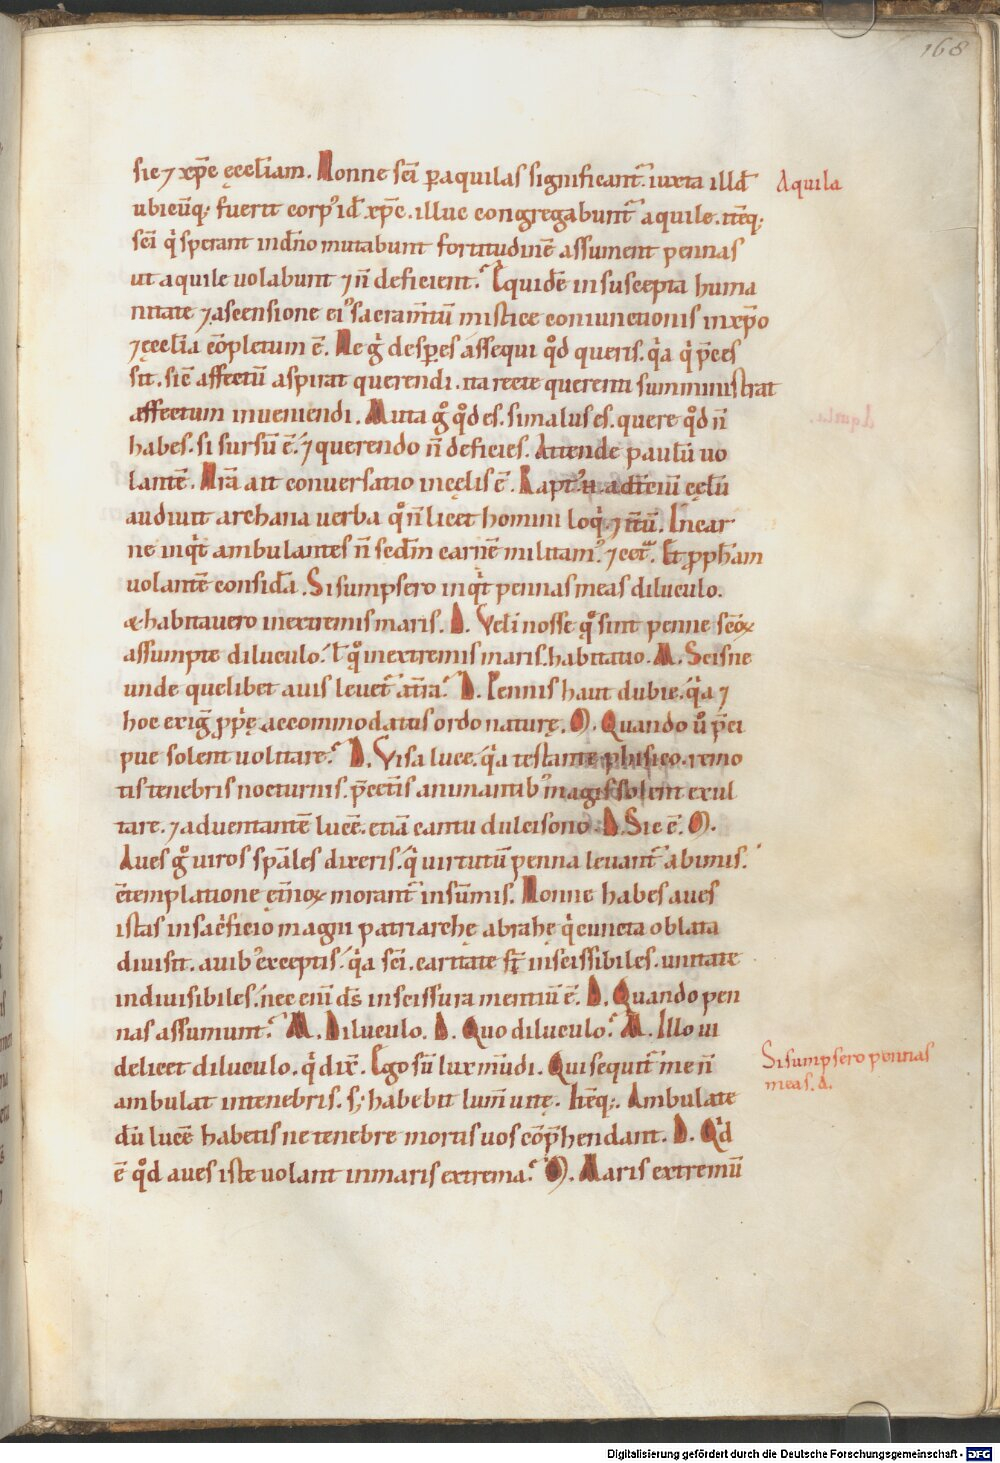 168
sic ⁊ xp̄c ęccl̄iam. Nonne sc̄i ꝑ aquilas significant᷑. iuxta illđ
Aquila
ubicūq; fuerit corp᷒ id ē xp̄c. illuc congregabunt᷑ aquile. itēq;
sc̄i q̇ sperant in dn̄o mutabunt fortitudinē assument pennas
ut aquile uolabunt ⁊ n̄ deficient. Equidē in suscepta huma
nitate ⁊ ascensione ei᷒ sacram̄tū mistice coniunctionis in xp̄o
⁊ ęccl̄ia cōpletum ē. Ne g̊ desꝑes assequi qd̊ queris. q̇a q̇ p̄ces
sit. sic̄ affectū aspirat querendi. ita recte querenti sumministrat
affectum inueniendi. Muta g̊ qd̊ es. si malus es. quere qd̊ n̄
habes. si sursū ē. ⁊ querendo n̄ deficies. Attende paulū uo
lantē. Nr̄a ait conuersatio in cęlis ē. Rapt᷒ .n. ad tciū cęlū
audiuit archana uerba q̊ n̄ licet homini loq̇. ⁊ itū. In car
ne inq̇t ambulantes n̄ scdm̄ carnē militam᷒. ⁊ cet̄. Et ꝓph̄am
uolantē consid̄a. Si sumpsero inq̇t pennas meas diluculo.
& habitauero in extremis maris. D. Velī nosse q̊ sint penne sc̄oꝝ
assumpte diluculo. ł q̊ in extremis maris habitatio. M. Scisne
unde quelibet auis leuet᷑ a tr̄a. D. Pennis haut dubie. q̇a ⁊
hoc exig̊ ꝓp̄ę accommodatis ordo naturę. M. Quando ů p̄ci
pue solent uolitare. D. Visa luce. q̇a testante phisico. remo
tis tenebris nocturnis. p̄ cet̄is animantib᷒ magis solent exul
tare. ⁊ aduentantē lucē. etiā cantu dulcisono. D. Sic ē. M.
Aues g̊ uiros sp̄ales dixeris. q̇ uirtutū penna leuant᷑ ab imis.
c̄templatione et̄noꝝ morant᷑ in sūmis. Nonne habes aues
istas in sac̊ficio magni patriarchę abrahę q̇ cuncta oblata
diuisit. auib᷒ exceptis. q̇a sc̄i. caritate st̄ inscissibiles. unitate
indiuisibiles. nec eni ds̄ in scissura mentiū ē. D. Quando pen
nas assumunt. M. Diluculo. D. Quo diluculo. M. Illo ui
delicet diluculo. q̇ dix̄. Ego sū lux mūdi. Qui sequit᷑ me n̄
Si sumpsero pennas
meas. d.
ambulat in tenebris. s; habebit lum̄ uitę. Itēq;. Ambulate
dū lucē habetis ne tenebre mortis uos cōp̄hendant. D. Qḋ
ē qd̊ aues iste uolant in maris extrema. M. Maris extremū
Digitalisierung gefördert durch die Deutsche Forschungsgemeinschaft - DFG